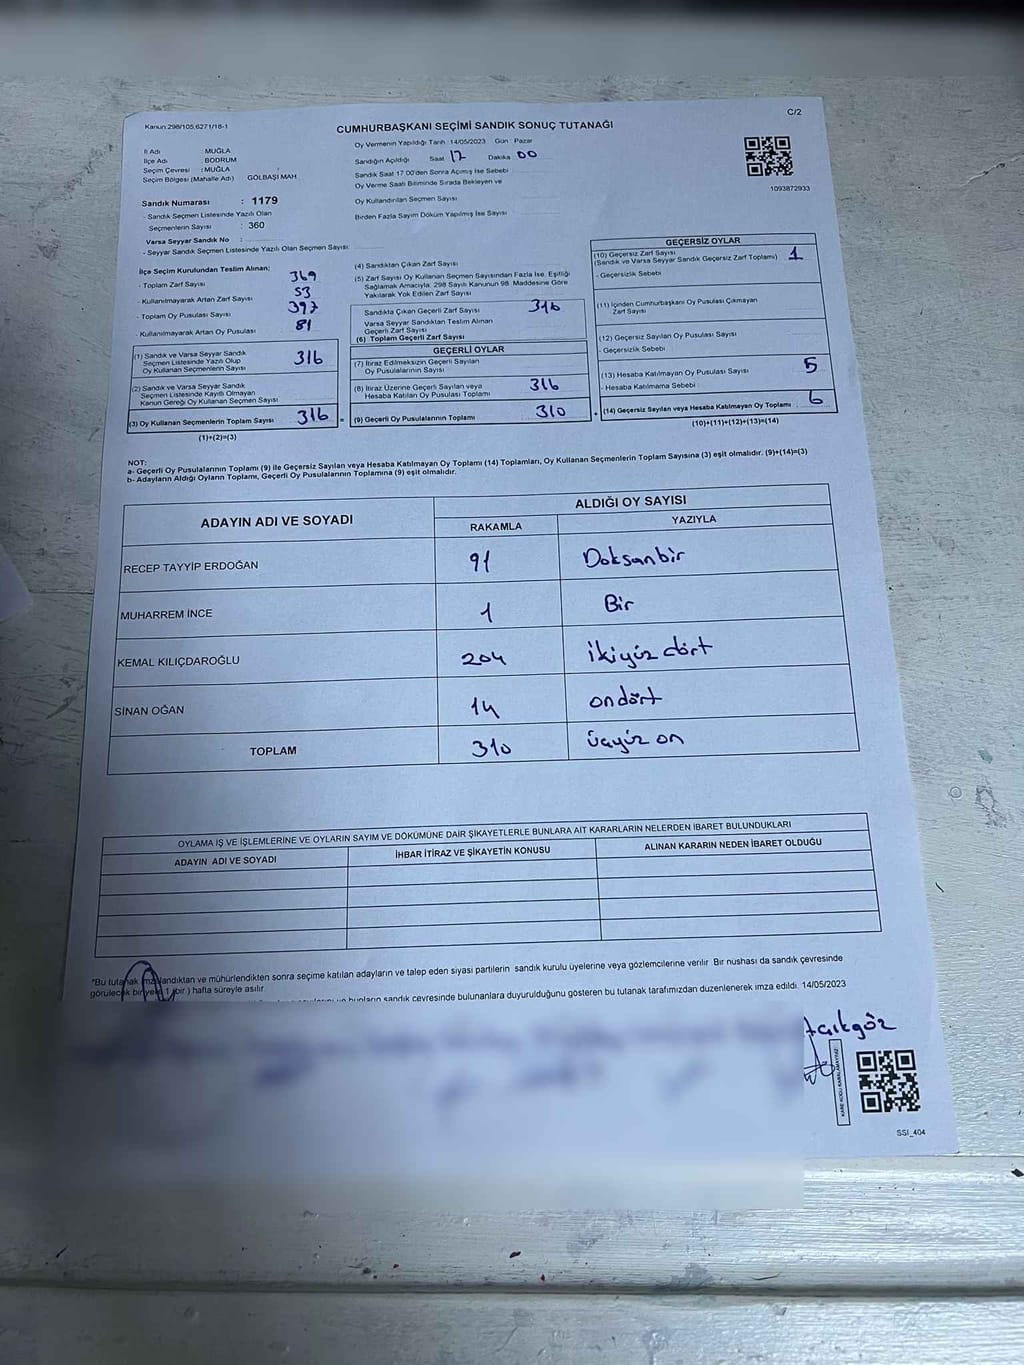 C/2
Kanun:298/105,6271/18-1
CUMHURBAŞKANI SEÇİMİ SANDIK SONUÇ TUTANAĞI
İl Adı : MUĞLA
İlçe Adı : BODRUM
Seçim Çevresi : MUĞLA
Seçim Bölgesi (Mahalle Adı) : GÖLBAŞI MAH.
Oy Vermenin Yapıldığı Tarih 14/05/2023 Gün Pazar
Sandığın Açıldığı Saat 17 Dakika 00
Sandık Saat 17.00'den Sonra Açılmış İse Sebebi
Oy Verme Saati Bitiminde Sırada Bekleyen ve
Oy Kullandırılan Seçmen Sayısı
Birden Fazla Sayım Döküm Yapılmış İse Sayısı
1093872933
Sandık Numarası : 1179
- Sandık Seçmen Listesinde Yazılı Olan
Seçmenlerin Sayısı : 360
Varsa Seyyar Sandık No :
- Seyyar Sandık Seçmen Listesinde Yazılı Olan Seçmen Sayısı:
İlçe Seçim Kurulundan Teslim Alınan:
- Toplam Zarf Sayısı 369
- Kullanılmayarak Artan Zarf Sayısı 53
- Toplam Oy Pusulası Sayısı 397
- Kullanılmayarak Artan Oy Pusulası 81
(1) Sandık ve Varsa Seyyar Sandık
Seçmen Listesinde Yazılı Olup
Oy Kullanan Seçmenlerin Sayısı 316
(2) Sandık ve Varsa Seyyar Sandık
Seçmen Listesinde Kayıtlı Olmayan
Kanun Gereği Oy Kullanan Seçmen Sayısı
(3) Oy Kullanan Seçmenlerin Toplam Sayısı 316 =
(1)+(2)=(3)
(4) Sandıktan Çıkan Zarf Sayısı
(5) Zarf Sayısı Oy Kullanan Seçmen Sayısından Fazla İse, Eşitliği
Sağlamak Amacıyla, 298 Sayılı Kanunun 98. Maddesine Göre
Yakılarak Yok Edilen Zarf Sayısı
Sandıkta Çıkan Geçerli Zarf Sayısı 316
Varsa Seyyar Sandıktan Teslim Alınan
Geçerli Zarf Sayısı
(6) Toplam Geçerli Zarf Sayısı
GEÇERLİ OYLAR
(7) İtiraz Edilmeksizin Geçerli Sayılan
Oy Pusulalarının Sayısı
(8) İtiraz Üzerine Geçerli Sayılan veya
Hesaba Katılan Oy Pusulası Toplamı 316
(9) Geçerli Oy Pusulalarının Toplamı 310 +
GEÇERSİZ OYLAR
(10) Geçersiz Zarf Sayısı
(Sandık ve Varsa Seyyar Sandık Geçersiz Zarf Toplamı) 1
- Geçersizlik Sebebi
(11) İçinden Cumhurbaşkanı Oy Pusulası Çıkmayan
Zarf Sayısı
(12) Geçersiz Sayılan Oy Pusulası Sayısı
- Geçersizlik Sebebi
(13) Hesaba Katılmayan Oy Pusulası Sayısı 5
- Hesaba Katılmama Sebebi
(14) Geçersiz Sayılan veya Hesaba Katılmayan Oy Toplamı 6
(10)+(11)+(12)+(13)=(14)
NOT:
a- Geçerli Oy Pusulalarının Toplamı (9) ile Geçersiz Sayılan veya Hesaba Katılmayan Oy Toplamı (14) Toplamları, Oy Kullanan Seçmenlerin Toplam Sayısına (3) eşit olmalıdır. (9)+(14)=(3)
b- Adayların Aldığı Oyların Toplamı, Geçerli Oy Pusulalarının Toplamına (9) eşit olmalıdır.
ADAYIN ADI VE SOYADI
ALDIĞI OY SAYISI
RAKAMLA YAZIYLA
RECEP TAYYİP ERDOĞAN 91 Doksanbir
MUHARREM İNCE 1 Bir
KEMAL KILIÇDAROĞLU 204 ikiyüz dört
SİNAN OĞAN 14 ondört
TOPLAM 310 üçyüz on
OYLAMA İŞ VE İŞLEMLERİNE VE OYLARIN SAYIM VE DÖKÜMÜNE DAİR ŞİKAYETLERLE BUNLARA AİT KARARLARIN NELERDEN İBARET BULUNDUKLARI
ADAYIN ADI VE SOYADI İHBAR İTİRAZ VE ŞİKAYETİN KONUSU ALINAN KARARIN NEDEN İBARET OLDUĞU
"Bu tutanak imzalandıktan ve mühürlendikten sonra seçime katılan adayların ve talep eden siyasi partilerin sandık kurulu üyelerine veya gözlemcilerine verilir. Bir nüshası da sandık çevresinde
görülecek bir yere 1 (bir) hafta süreyle asılır.
bunların sandık çevresinde bulunanlara duyurulduğunu gösteren bu tutanak tarafımızdan düzenlenerek imza edildi. 14/05/2023
Açıkgöz
KARE KODU KARALAMAYINIZ
SSI_404